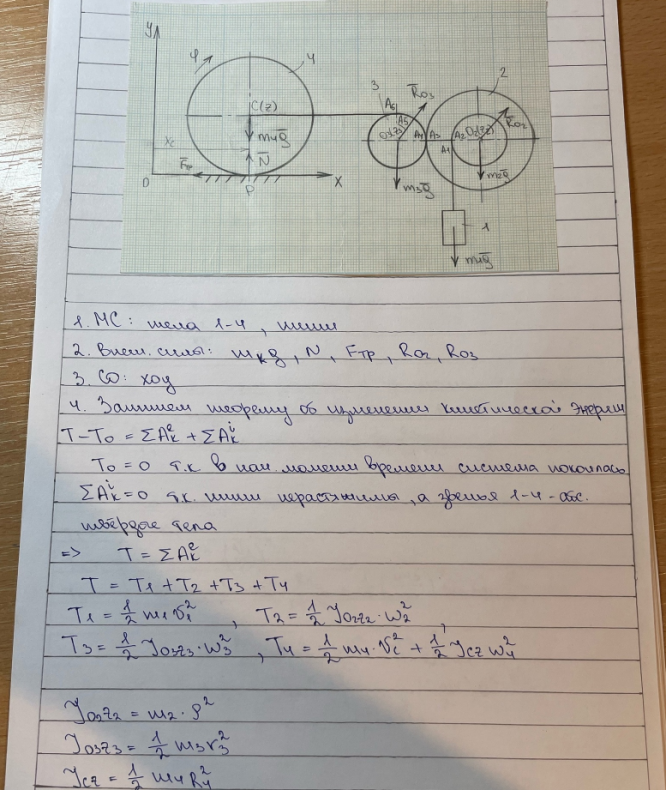 y
φ
4
C(z)
3
A₆
A₅
R̄o₃
2
R̄o₂
O₃(z₃)
A₄
A₃
A₂
O₂(z₂)
A₁
Xc
m₄ḡ
N̄
F̄тр
O
P
X
m₃ḡ
m₂ḡ
1
m₁ḡ
1. МС: тела 1-4, нити
2. Внеш. силы: mₖg, N, Fтр, Ro₂, Ro₃
3. СО: xoy
4. Запишем теорему об изменении кинетической энергии
T-T₀ = ΣAₖᵉ + ΣAₖⁱ
T₀ = 0 т.к в нач. момент времени система покоилась
ΣAₖⁱ=0 т.к. нити нерастяжимы, а звенья 1-4 - абс.
твёрдые тела
=> T = ΣAₖᵉ
T = T₁ + T₂ + T₃ + T₄
T₁ = 1/2 m₁v₁², T₂ = 1/2 Jo₂z₂·ω₂²,
T₃ = 1/2 Jo₃z₃·ω₃², T₄ = 1/2 m₄·vc² + 1/2 Jcz ω₄²
Jo₂z₂ = m₂·ρ²
Jo₃z₃ = 1/2 m₃r₃²
Jcz = 1/2 m₄R₄²